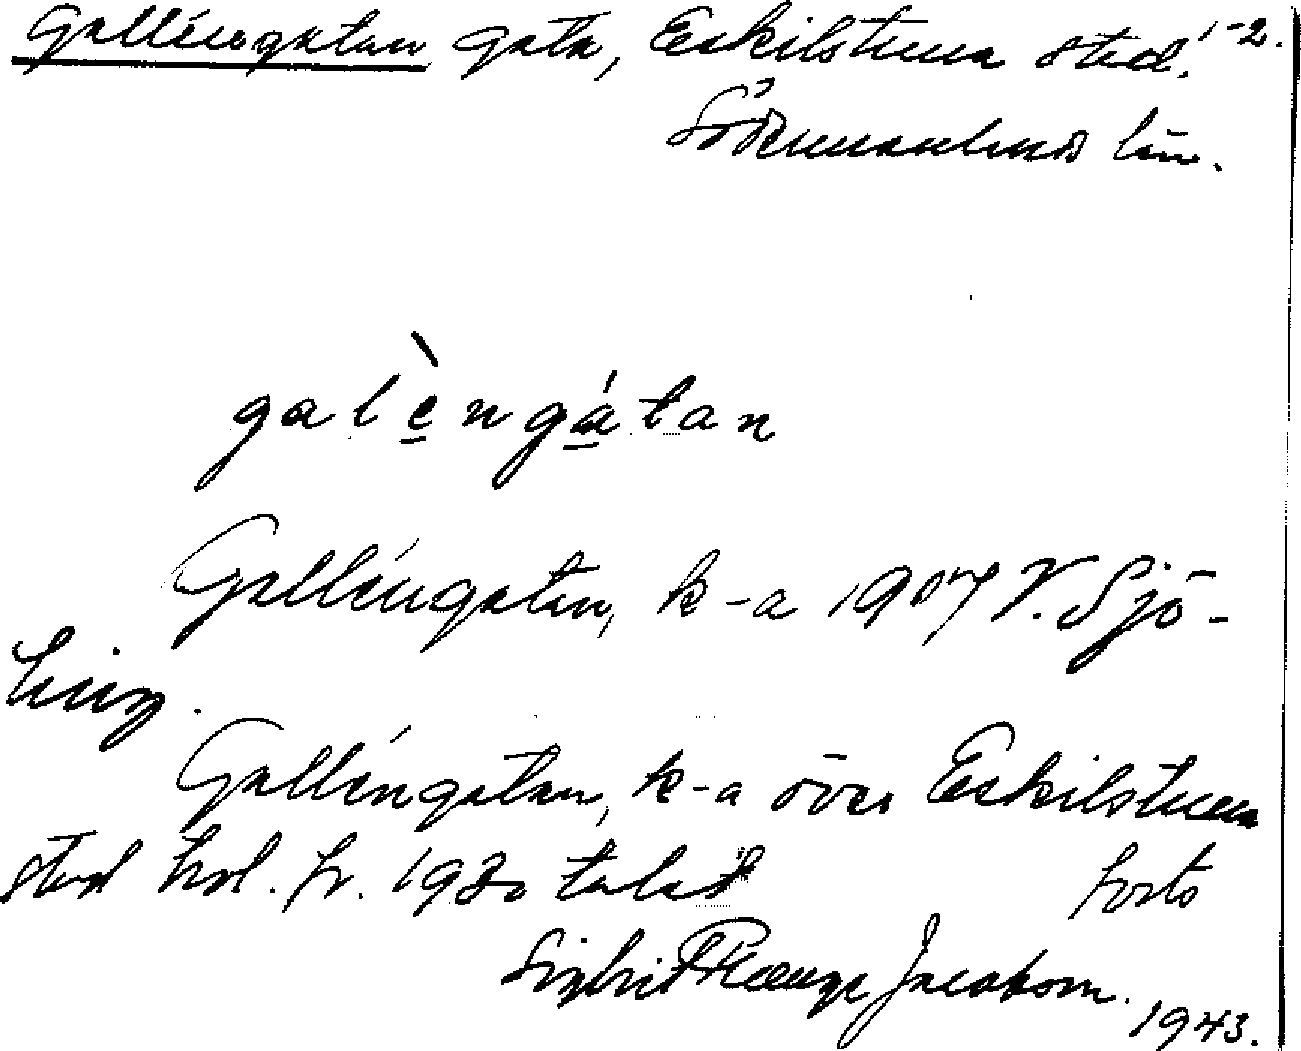 Galléngatan gata, Eskilstuna stad. 1-2.
Södermanlands län.
galèngátan
Galléngatan, k-a 1907 V. Sjö-
ling.
Galléngatan, k-a över Eskilstuna
stad hol. fr. 1930 talet forts
Sigbrit Plænge Jacobson.
1943.